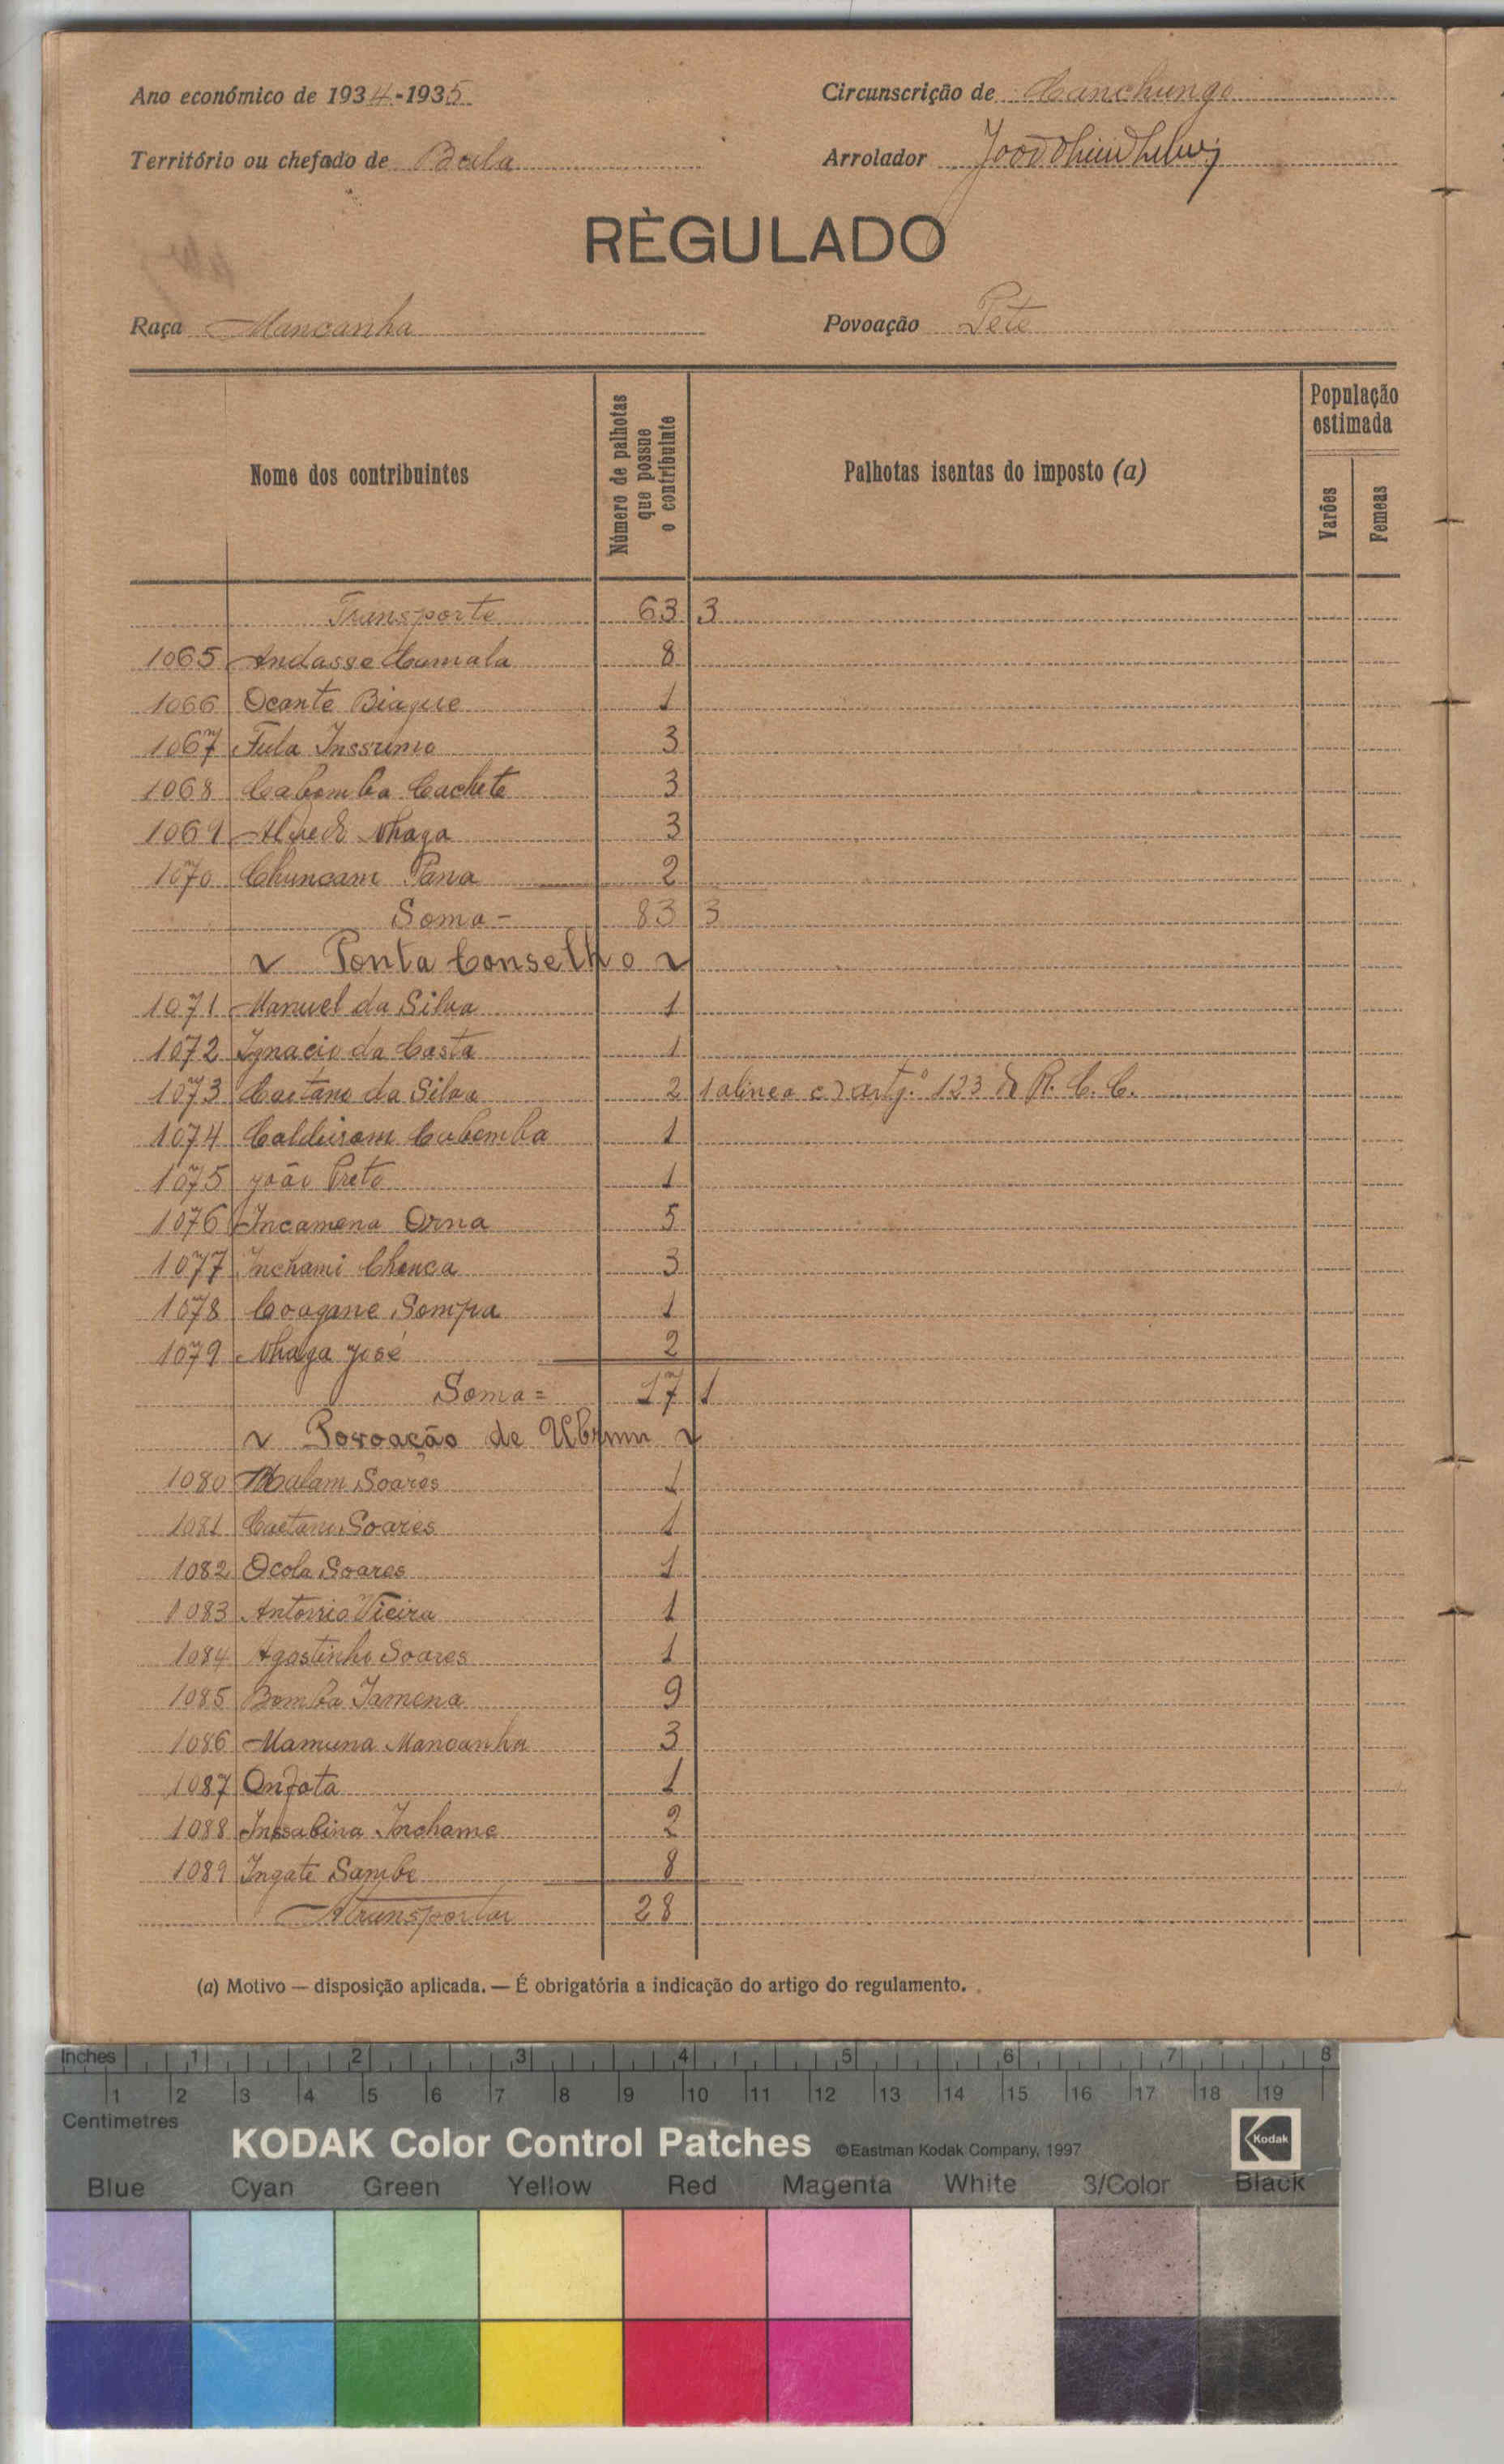 Ano económico de 1934-1935 Circunscrição de Canchungo
Território ou chefado de Bula Arrolador
RÈGULADO
Raça Mancanha Povoação Pete
Nome dos contribuintes
Número de palhotas que possue o contribuinte
Palhotas isentas do imposto (a)
População estimada
Varões
Femeas
Transporte 63 3
1065 Andasse Camala 8
1066 Ocante Biague 1
1067 Fula 3
1068 Cabomba Cachete 3
1069 Alfredo Nhaga 3
1070 Chuncam Pana 2
Soma - 83 3
Ponta Conselho
1071 Manuel da Silva 1
1072 Ignacio da Costa 1
1073 Caetano da Silva 2 1 alinea c) artg.º 123 do R. C. C.
1074 Caldeiram Cabomba 1
1075 João Preto 1
1076 Incamena Orna 5
1077 Inchami Chonca 3
1078 Coagane Sompa 1
1079 Nhaga José 2
Soma = 17 1
Povoação de
1080 Malam Soares 1
1081 Caetano Soares 1
1082 Ocola Soares 1
1083 Antonio Vieira 1
1084 Agostinho Soares 1
1085 Bomba Jamena 9
1086 Mamuna Mancanha 3
1087 Onfota 1
1088 Inssabina Inchame 2
1089 Ingate Sambe 8
A transportar 28
(a) Motivo — disposição aplicada. — É obrigatória a indicação do artigo do regulamento.
Inches 1 2 3 4 5 6 7 8
1 2 3 4 5 6 7 8 9 10 11 12 13 14 15 16 17 18 19
Centimetres
KODAK Color Control Patches ©Eastman Kodak Company, 1997 Kodak
Blue Cyan Green Yellow Red Magenta White 3/Color Black